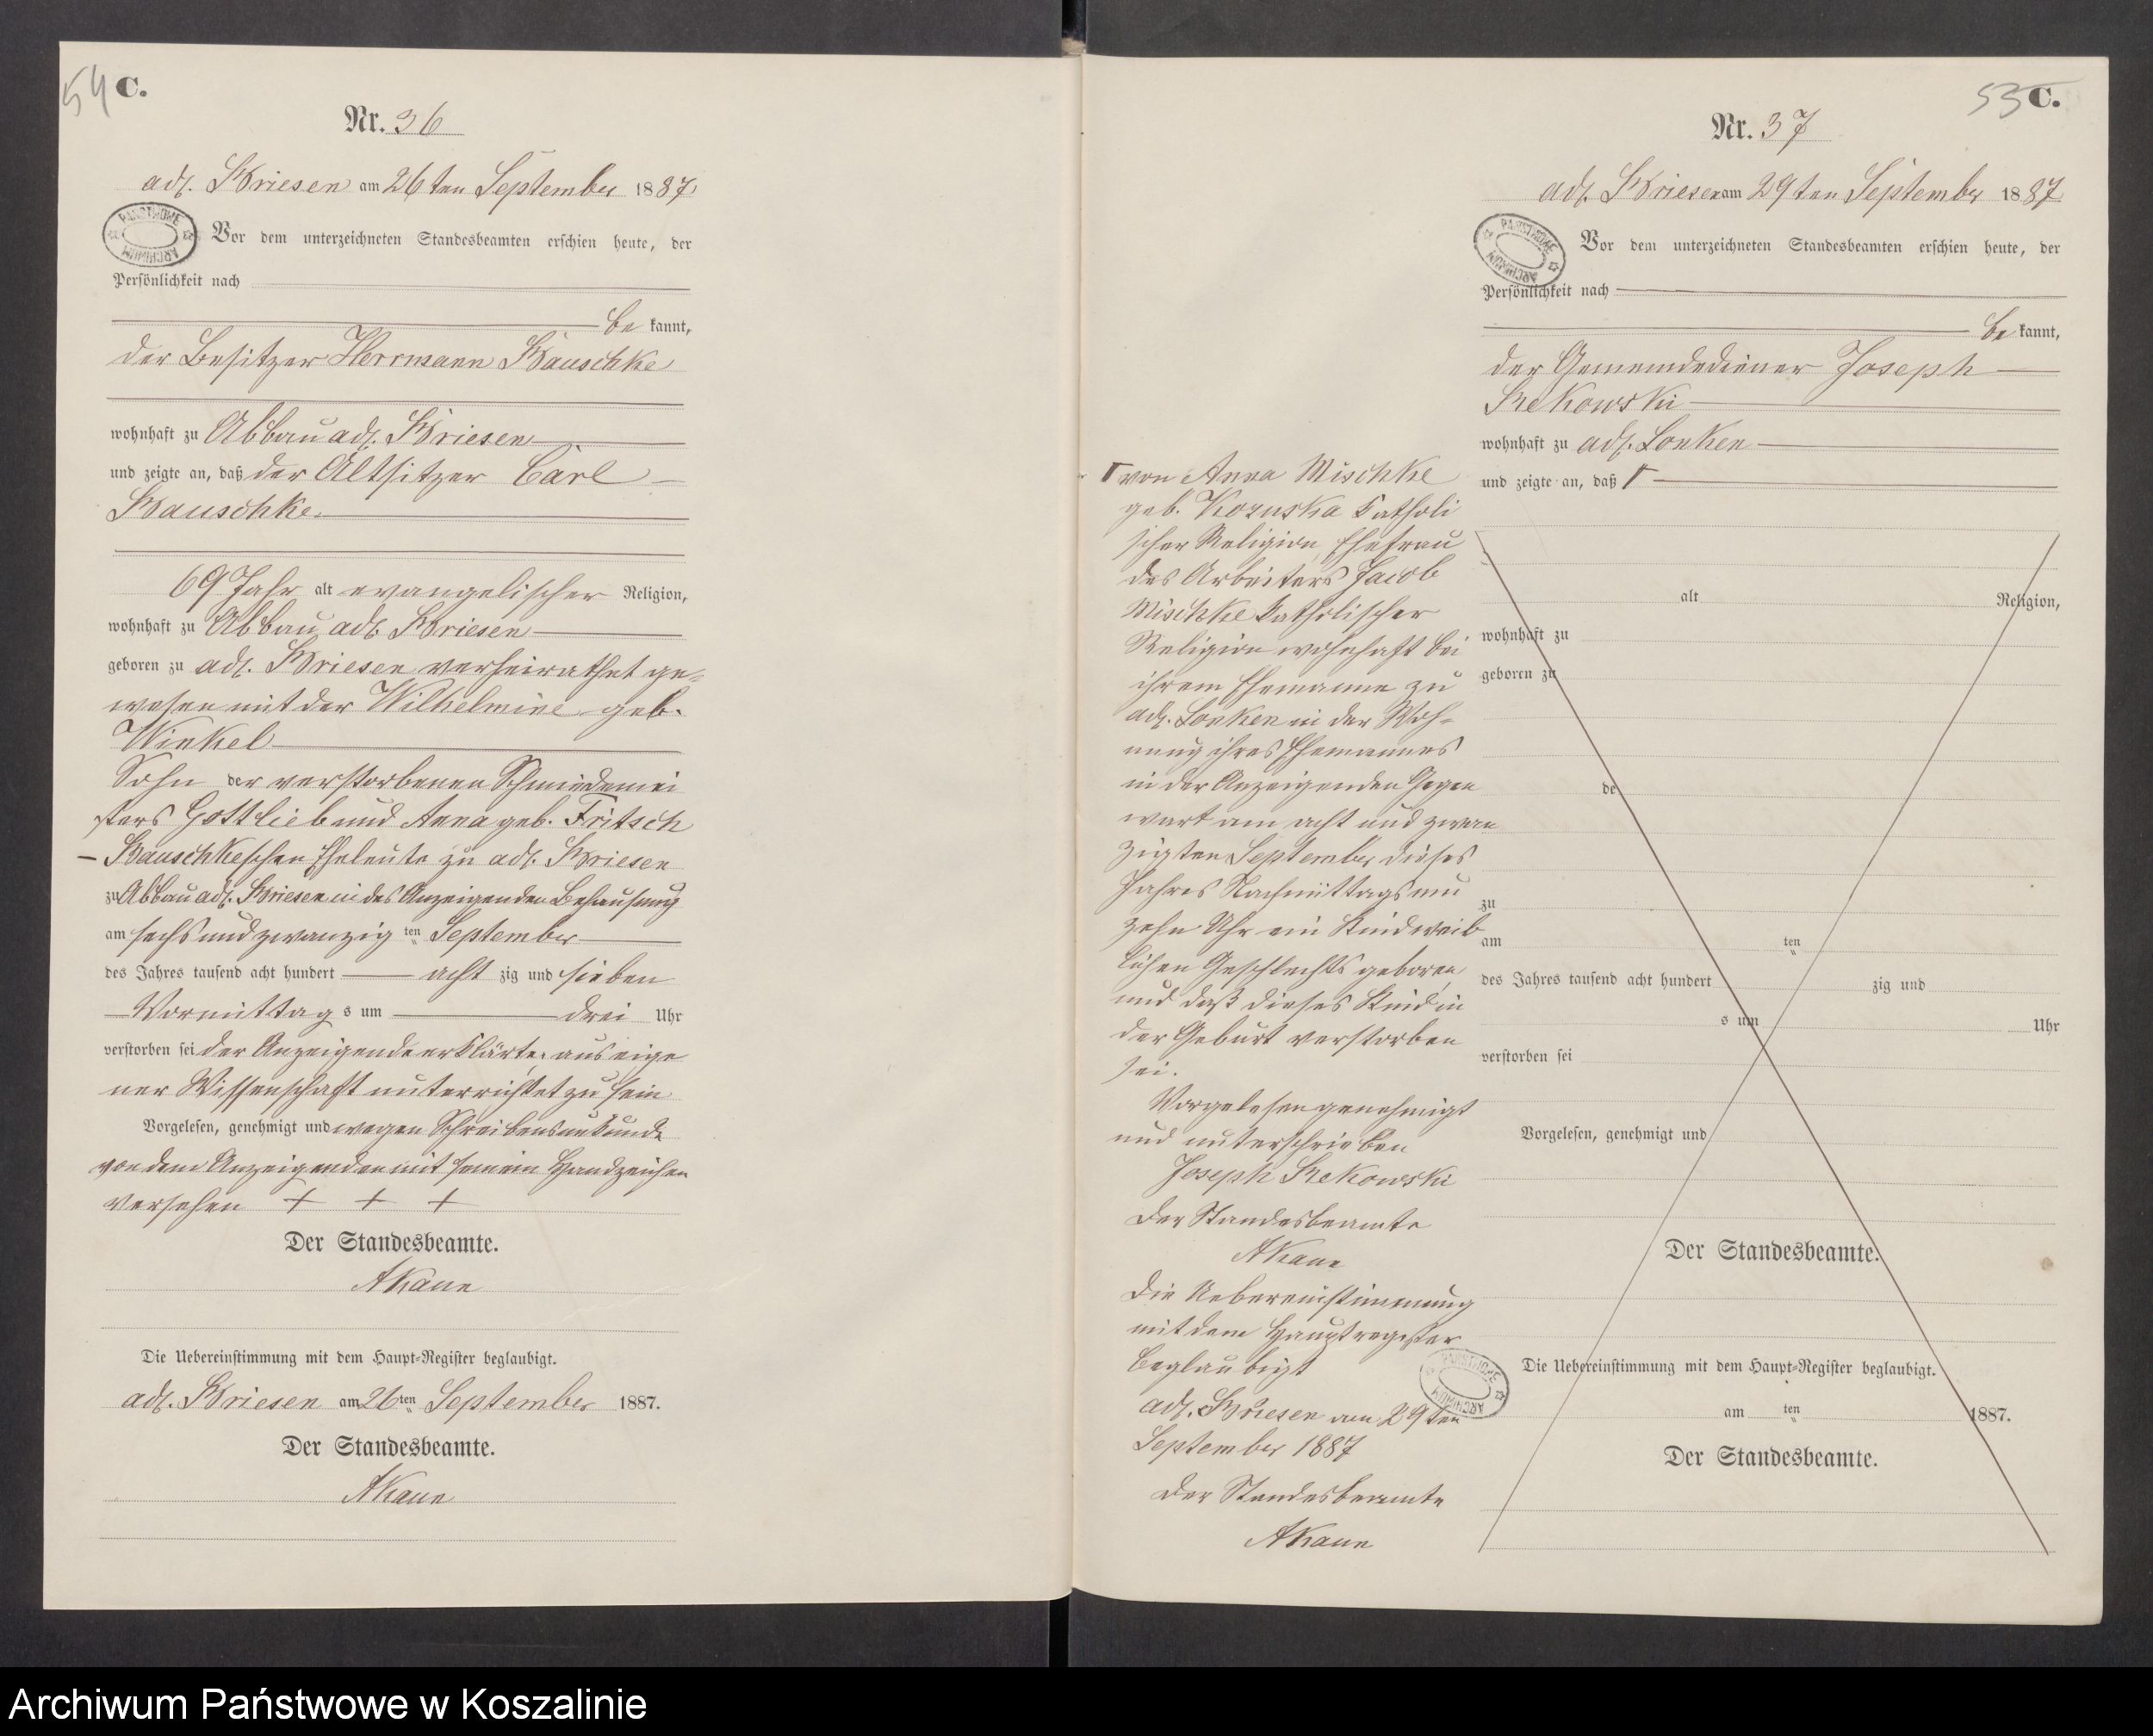 54 C.
Nr. 36
adl. Briesen am 26ten September 1887
PAŃSTWOWE ARCHIWUM
Vor dem unterzeichneten Standesbeamten erschien heute, der
Persönlichkeit nach
be kannt,
der Besitzer Herrmann Bauschke
wohnhaft zu Abbau adl. Briesen
und zeigte an, daß der Altsitzer Carl
Bauschke
69 Jahr alt evangelischer Religion,
wohnhaft zu Abbau adl. Briesen
geboren zu adl. Briesen verheirathet ge-
wesen mit der Wilhelmine geb.
Winkel
Sohn der verstorbenen Schmiedemei
sters Gottlieb und Anna geb. Fritsch
– Bauschkeschen Eheleute zu adl. Briesen
zu Abbau adl. Briesen in des Anzeigenden Behausung
am sechs und zwanzig ten September
des Jahres tausend acht hundert acht zig und sieben
Vormittag s um drei Uhr
verstorben sei der Anzeigende erklärte, aus eige
ner Wissenschaft unterrichtet zu sein
Vorgelesen, genehmigt und wegen Schreibensunkunde
von dem Anzeigenden mit seinem Handzeichen
versehen + + +
Der Standesbeamte.
AKaun
Die Uebereinstimmung mit dem Haupt-Register beglaubigt.
adl. Briesen am 26ten September 1887.
Der Standesbeamte.
AKaun
53 C.
Nr. 37
adl. Briesen am 29ten September 1887
PAŃSTWOWE ARCHIWUM
Vor dem unterzeichneten Standesbeamten erschien heute, der
Persönlichkeit nach
be kannt,
der Gemeindediener Joseph
Rekowski
wohnhaft zu adl. Lonken
und zeigte an, daß
von Anna Mischke
geb. Kozuska katholi
scher Religion, Ehefrau
des Arbeiters Jacob
Mischke katholischer
Religion wohnhaft bei
ihrem Ehemanne zu
adl. Lonken in der Woh-
nung ihres Ehemannes
in der Anzeigenden Gegen
wart am acht und zwan
zigten September dieses
Jahres Nachmittags um
zehn Uhr ein Kind weib
lichen Geschlechts geboren,
und daß dieses Kind in
der Geburt verstorben
sei.
Vorgelesen genehmigt
und unterschrieben
Joseph Rekowski
Der Standesbeamte
AKaun
Die Uebereinstimmung
mit dem Hauptregister
beglaubigt
adl. Briesen am 29ten
September 1887
Der Standesbeamte
AKaun
PAŃSTWOWE ARCHIWUM
alt Religion,
wohnhaft zu
geboren zu
de
zu
am ten
des Jahres tausend acht hundert zig und
s um Uhr
verstorben sei
Vorgelesen, genehmigt und
Der Standesbeamte.
Die Uebereinstimmung mit dem Haupt-Register beglaubigt.
am ten 1887.
Der Standesbeamte.
Archiwum Państwowe w Koszalinie